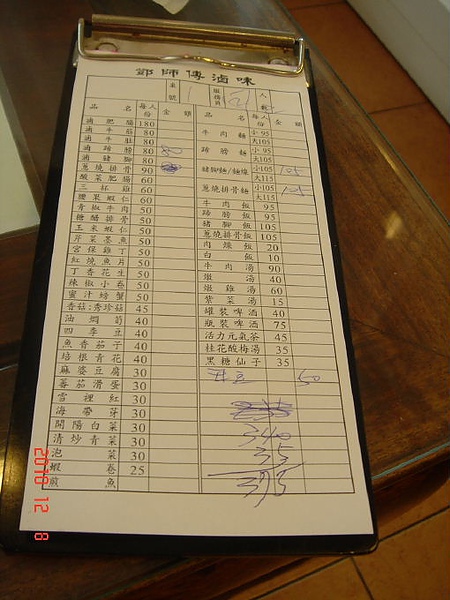 鄧師傅滷味
桌號 1 服務員 人數
品名 每人份 金額 品名 每人份 金額
滷肥腸 180
滷牛筋 80
滷牛肚 80
滷蹄膀 80 80
滷豬腳 80
蔥燒排骨 90
酸菜肥腸 60
三杯雞 60
腰果蝦仁 60
青椒牛肉 50
糖醋排骨 50
玉米蝦仁 50
芹菜墨魚 50
宮保雞丁 50
紅燒魚片 50
丁香花生 50
辣椒小卷 50
蜜汁螃蟹 50
香菇/秀珍菇 45
油燜筍 40
四季豆 40
魚香茄子 40
培根青花 40
麻婆豆腐 30
蕃茄滑蛋 30
雪裡紅 30
海帶芽 30
開陽白菜 30
清炒青菜 30
泡菜 30
蝦卷 25
煎魚
牛肉麵 小95 大105
蹄膀麵 小95 大105
豬腳麵/麵線 小105 大115 105
蔥燒排骨麵 小105 大115 105
牛肉飯 95
蹄膀飯 95
豬腳飯 105
蔥燒排骨飯 105
肉燥飯 20
白飯 10
牛肉湯 90
湯 40
雞湯 60
紫菜湯 15
罐裝啤酒 40
瓶裝啤酒 75
活力元氣茶 45
桂花酸梅湯 35
黑糖仙子 35
50
340
35
395
2010 12 8